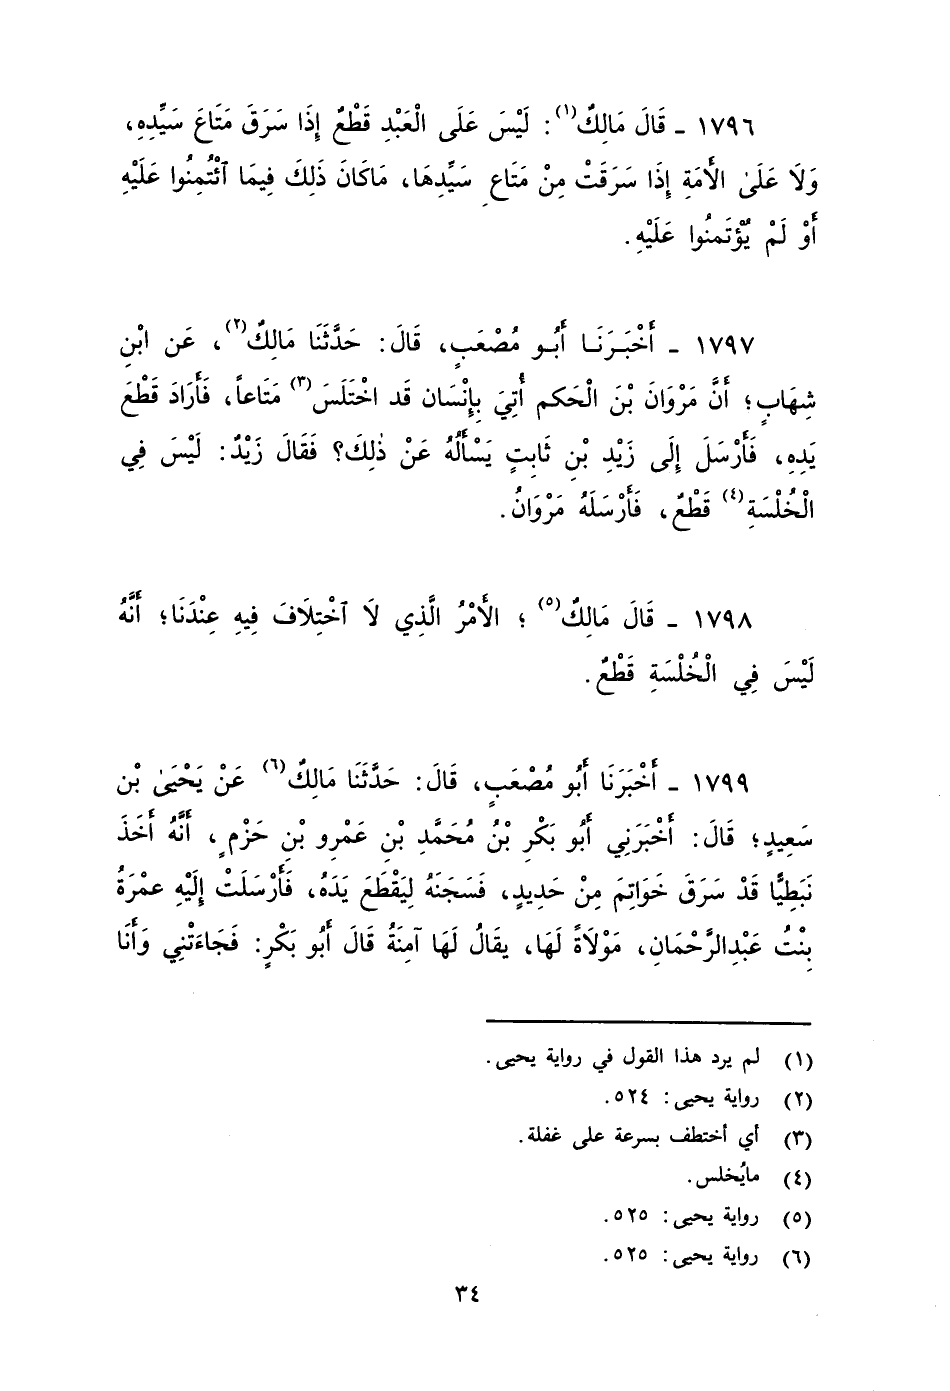 ١٧٩٦ ـ قَالَ مَالِكٌ(١): لَيْسَ عَلَى الْعَبْدِ قَطْعٌ إِذَا سَرَقَ مَتَاعَ سَيِّدِهِ،
وَلَا عَلَىٰ الأَمَةِ إِذَا سَرَقَتْ مِنْ مَتَاعِ سَيِّدِهَا، مَاكَانَ ذَلِكَ فِيمَا ٱئْتُمِنُوا عَلَيْهِ
أَوْ لَمْ يُؤْتَمنُوا عَلَيْهِ.
١٧٩٧ ـ أَخْبَرَنَا أَبُو مُصْعَبٍ، قَالَ: حَدَّثَنَا مَالِكٌ(٢)، عَن ابْنِ
شِهَابٍ؛ أَنَّ مَرْوَانَ بْنَ الْحَكم أُتِيَ بِإِنْسَان قَد اخْتَلَسَ(٣) مَتَاعاً، فَأَرَادَ قَطْعَ
يَدِهِ، فَأَرْسَلَ إِلَى زَيْدِ بْنِ ثَابتٍ يَسْأَلُهُ عَنْ ذٰلِكَ؟ فَقَالَ زَيْدٌ: لَيْسَ فِي
الْخُلْسَةِ(٤) قَطْعٌ، فَأَرْسَلَهُ مَرْوَانُ.
١٧٩٨ ـ قَالَ مَالِكٌ(٥) ؛ الأَمْرُ الَّذِي لَا ٱخْتِلَافَ فِيهِ عِنْدَنَا؛ أَنَّهُ
لَيْسَ فِي الْخُلْسَةِ قَطْعٌ.
١٧٩٩ ـ أَخْبَرَنَا أَبُو مُصْعَبٍ، قَالَ: حَدَّثَنَا مَالِكٌ(٦) عَنْ يَحْيَىٰ بْن
سَعِيدٍ؛ قَالَ: أَخْبَرَنِي أَبُو بَكْرِ بْنُ مُحَمَّدِ بْنِ عَمْرِو بْنِ حَزْمٍ، أَنَّهُ أَخَذَ
نَبَطِيًّا قَدْ سَرَقَ خَوَاتِمَ مِنْ حَدِيدٍ، فَسَجَنَهُ لِيَقْطَعَ يَدَهُ، فَأَرْسَلَتْ إِلَيْهِ عمْرَةُ
بِنْتُ عَبْدِالرَّحْمَانِ، مَوْلَاةً لَهَا، يقَالُ لَهَا آمِنَةُ قَالَ أَبُو بَكْرٍ: فَجَاءَتْنِي وَأَنَا
(١) لم يرد هذا القول في رواية يحيى.
(٢) رواية يحيى: ٥٢٤.
(٣) أي أختطف بسرعة على غفلة.
(٤) مايُخلس.
(٥) رواية يحيى: ٥٢٥.
(٦) رواية يحيى: ٥٢٥.
٣٤